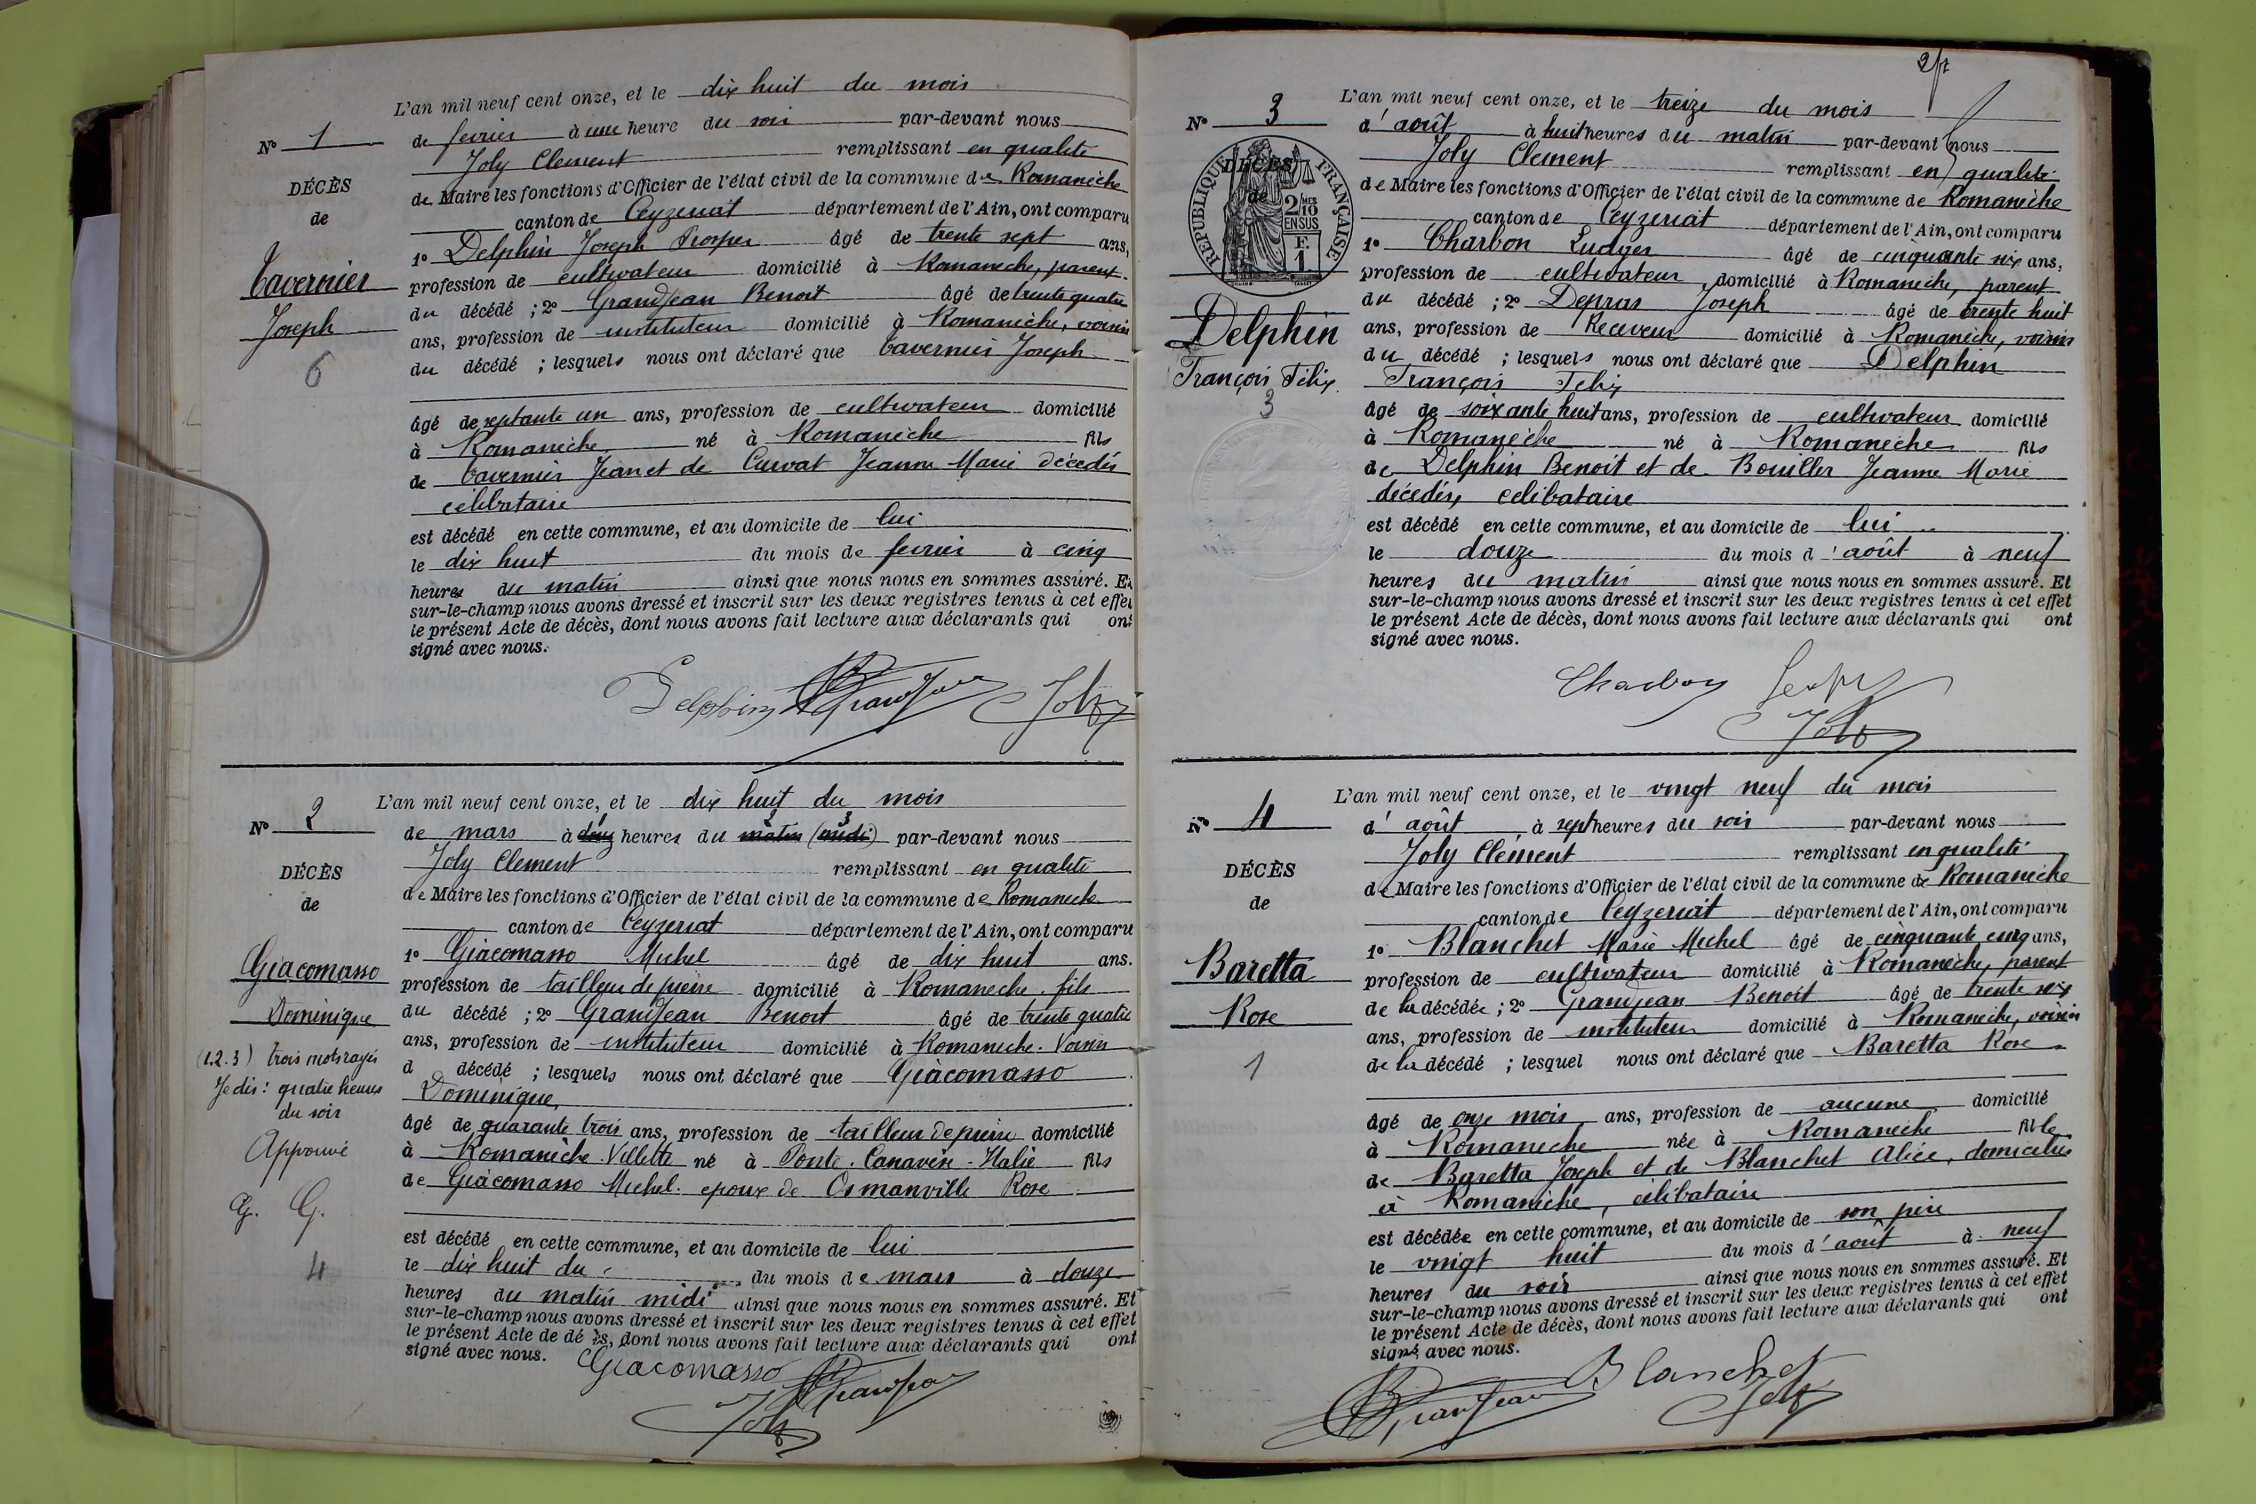 L'an mil neuf cent onze, et le dix huit du mois
N° 1
de fevrier à une heure du soir par-devant nous
Joly Clement remplissant en qualité
DÉCÈS
de Maire les fonctions d'Officier de l'état civil de la commune de Romanèche
de
canton de Ceyzeriat département de l'Ain, ont comparu
1° Delphin Joseph Prosper âgé de trente sept ans,
Tavernier
profession de cultivateur domicilié à Romanèche, parent
du décédé ; 2° Grandjean Benoit âgé de trente quatre
Joseph
ans, profession de instituteur domicilié à Romanèche, voisin
6
du décédé ; lesquels nous ont déclaré que Tavernier Joseph
âgé de septante un ans, profession de cultivateur domicilié
à Romanèche né à Romanèche fils
de Tavernier Jean et de Curvat Jeanne Marie décédés
célibataire
est décédé en cette commune, et au domicile de lui
le dix huit du mois de fevrier à cinq
heures du matin ainsi que nous nous en sommes assuré. Et
sur-le-champ nous avons dressé et inscrit sur les deux registres tenus à cet effet
le présent Acte de décès, dont nous avons fait lecture aux déclarants qui ont
signé avec nous.
Delphin Grandjean Joly
L'an mil neuf cent onze, et le dix huit du mois
N° 2
de mars à deux 1 heures du matin 2 (midi) 3 par-devant nous
Joly Clement remplissant en qualité
DÉCÈS
de Maire les fonctions d'Officier de l'état civil de la commune de Romaneche
de
canton de Ceyzeriat département de l'Ain, ont comparu
1° Giacomasso Michel âgé de dix huit ans.
Giacomasso
profession de tailleur de pierre domicilié à Romaneche. fils
Dominique
du décédé ; 2° Grandjean Benoit âgé de trente quatre
ans, profession de instituteur domicilié à Romaneche. Voisin
(1.2.3) trois mots rayés
d décédé ; lesquels nous ont déclaré que Giacomasso
Je dis : quatre heures
Dominique,
du soir
âgé de quarante trois ans, profession de tailleur de pierre domicilié
Approuvé
à Romanèche-Villette né à Ponte. Canavèse - Italie fils
de Giacomasso Michel. epoux de Osmanville Rose
G. G.
est décédé en cette commune, et au domicile de lui
4
le dix huit du du mois de mars à douze
heures du matin midi ainsi que nous nous en sommes assuré. Et
sur-le-champ nous avons dressé et inscrit sur les deux registres tenus à cet effet
le présent Acte de dé ès, dont nous avons fait lecture aux déclarants qui ont
signé avec nous.
Giacomasso Grandjean
Joly
2
L'an mil neuf cent onze, et le treize du mois
N° 3
d'août à huit heures du matin par-devant nous
Joly Clement remplissant en qualité
DÉCÈS
de
RÉPUBLIQUE FRANÇAISE
2/10 EN SUS
F. 1
de Maire les fonctions d'Officier de l'état civil de la commune de Romanèche
canton de Ceyzeriat département de l'Ain, ont comparu
1° Charbon Ludger âgé de cinquante six ans,
profession de cultivateur domicilié à Romanèche, parent
du décédé ; 2° Depras Joseph âgé de trente huit
Delphin
ans, profession de Receveur domicilié à Romanèche, voisin
du décédé ; lesquels nous ont déclaré que Delphin
François Félix
François Felix
3
âgé de soixante huit ans, profession de cultivateur domicilié
à Romanèche né à Romanèche fils
de Delphin Benoit et de Bouiller Jeanne Marie
décédés, célibataire
est décédé en cette commune, et au domicile de lui
le douze du mois d'août à neuf
heures du matin ainsi que nous nous en sommes assuré. Et
sur-le-champ nous avons dressé et inscrit sur les deux registres tenus à cet effet
le présent Acte de décès, dont nous avons fait lecture aux déclarants qui ont
signé avec nous.
Charbon
Joly
L'an mil neuf cent onze, et le vingt neuf du mois
N° 4
d'août à sept heures du soir par-devant nous
Joly Clément remplissant en qualité
DÉCÈS
de Maire les fonctions d'Officier de l'état civil de la commune de Romanèche
de
canton de Ceyzeriat département de l'Ain, ont comparu
1° Blanchet Marie Michel âgé de cinquante cinq ans,
Baretta
profession de cultivateur domicilié à Romanèche, parent
de la décédée ; 2° Grandjean Benoit âgé de trente six
Rose
ans, profession de instituteur domicilié à Romaneche, voisin
1
de la décédé ; lesquel nous ont déclaré que Baretta Rose
âgé de onze mois ans, profession de aucune domicilié
à Romaneche née à Romaneche fille
de Baretta Joseph et de Blanchet Alice, domiciliés
à Romanèche, célibataire
est décédée en cette commune, et au domicile de son père
le vingt huit du mois d'août à neuf
heures du soir ainsi que nous nous en sommes assuré. Et
sur-le-champ nous avons dressé et inscrit sur les deux registres tenus à cet effet
le présent Acte de décès, dont nous avons fait lecture aux déclarants qui ont
signé avec nous.
Blanchet
Grandjean Joly